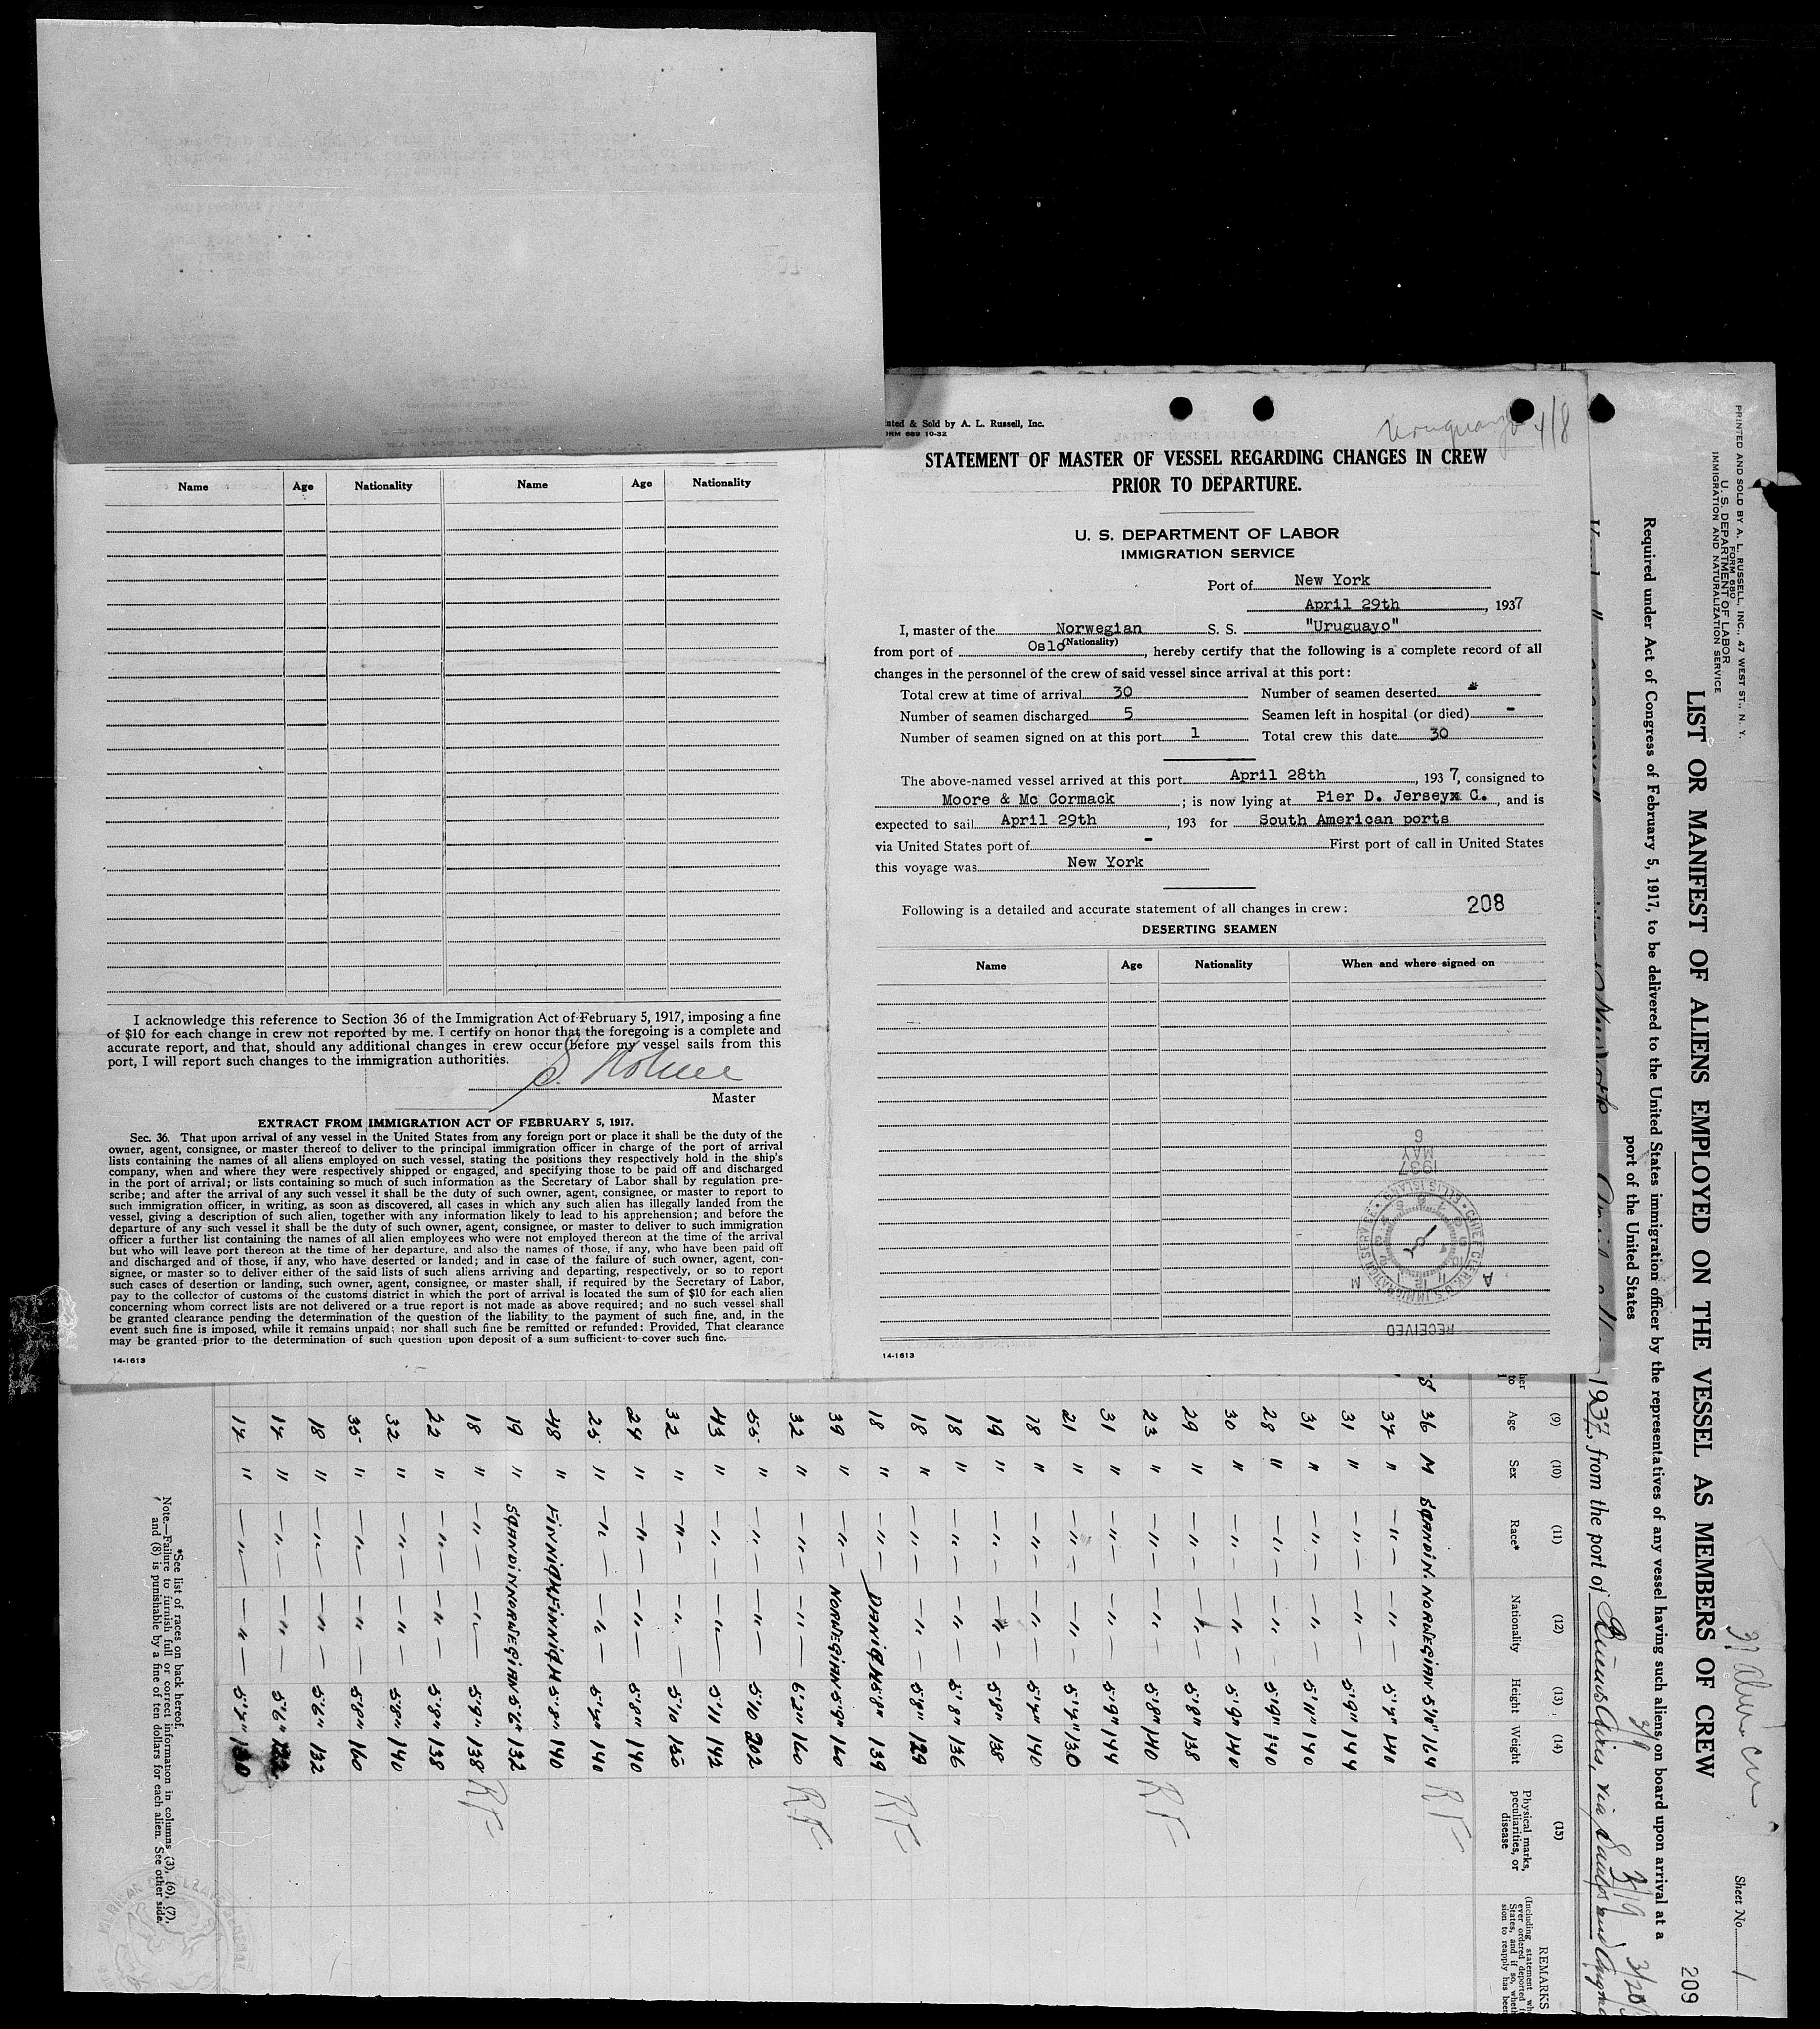 Printed & Sold by A. L. Russell, Inc.
FORM 689 10-32
Uruguayo 4/8
STATEMENT OF MASTER OF VESSEL REGARDING CHANGES IN CREW
PRIOR TO DEPARTURE.
U. S. DEPARTMENT OF LABOR
IMMIGRATION SERVICE
Port of New York
April 29th, 1937
I, master of the Norwegian S. S. "Uruguayo"
(Nationality)
from port of Oslo, hereby certify that the following is a complete record of all
changes in the personnel of the crew of said vessel since arrival at this port:
Total crew at time of arrival 30 Number of seamen deserted
Number of seamen discharged 5 Seamen left in hospital (or died) -
Number of seamen signed on at this port 1 Total crew this date 30
The above-named vessel arrived at this port April 28th, 1937, consigned to
Moore & Mc Cormack; is now lying at Pier D. Jerseyx C., and is
expected to sail April 29th, 193 for South American ports
via United States port of - First port of call in United States
this voyage was New York
Following is a detailed and accurate statement of all changes in crew: 208
DESERTING SEAMEN
Name Age Nationality When and where signed on
RECEIVED
CHIEF CLERK U.S. IMMIGRATION SERVICE ELLIS ISLAND
1937
MAY
6
A M
14-1613
Name Age Nationality Name Age Nationality
I acknowledge this reference to Section 36 of the Immigration Act of February 5, 1917, imposing a fine
of $10 for each change in crew not reported by me. I certify on honor that the foregoing is a complete and
accurate report, and that, should any additional changes in crew occur before my vessel sails from this
port, I will report such changes to the immigration authorities.
Master
EXTRACT FROM IMMIGRATION ACT OF FEBRUARY 5, 1917.
Sec. 36. That upon arrival of any vessel in the United States from any foreign port or place it shall be the duty of the
owner, agent, consignee, or master thereof to deliver to the principal immigration officer in charge of the port of arrival
lists containing the names of all aliens employed on such vessel, stating the positions they respectively hold in the ship's
company, when and where they were respectively shipped or engaged, and specifying those to be paid off and discharged
in the port of arrival; or lists containing so much of such information as the Secretary of Labor shall by regulation pre-
scribe; and after the arrival of any such vessel it shall be the duty of such owner, agent, consignee, or master to report to
such immigration officer, in writing, as soon as discovered, all cases in which any such alien has illegally landed from the
vessel, giving a description of such alien, together with any information likely to lead to his apprehension; and before the
departure of any such vessel it shall be the duty of such owner, agent, consignee, or master to deliver to such immigration
officer a further list containing the names of all alien employees who were not employed thereon at the time of the arrival
but who will leave port thereon at the time of her departure, and also the names of those, if any, who have been paid off
and discharged and of those, if any, who have deserted or landed; and in case of the failure of such owner, agent, con-
signee, or master so to deliver either of the said lists of such aliens arriving and departing, respectively, or so to report
such cases of desertion or landing, such owner, agent, consignee, or master shall, if required by the Secretary of Labor,
pay to the collector of customs of the customs district in which the port of arrival is located the sum of $10 for each alien
concerning whom correct lists are not delivered or a true report is not made as above required; and no such vessel shall
be granted clearance pending the determination of the question of the liability to the payment of such fine, and, in the
event such fine is imposed, while it remains unpaid; nor shall such fine be remitted or refunded: Provided, That clearance
may be granted prior to the determination of such question upon deposit of a sum sufficient to cover such fine.
14-1613
PRINTED AND SOLD BY A. L. RUSSELL, INC., 47 WEST ST., N. Y.
FORM 680
U. S. DEPARTMENT OF LABOR
IMMIGRATION AND NATURALIZATION SERVICE
Sheet No. 1
209
LIST OR MANIFEST OF ALIENS EMPLOYED ON THE VESSEL AS MEMBERS OF CREW
Required under Act of Congress of February 5, 1917, to be delivered to the United States immigration officer by the representatives of any vessel having such aliens on board upon arrival at a
port of the United States
3/9 3/19 3/20
1937, from the port of Buenos Aires, via Santos and
(9) (10) (11) (12) (13) (14) (15)
Age Sex Race* Nationality Height Weight Physical marks, peculiarities, or disease REMARKS
36 M SCANDIN. NORWEGIAN 5'10" 164 RF
34 " -"- -"- 5'7" 140
31 " -"- -"- 5'9" 144
31 " -"- -"- 5'11" 140
28 " -"- -"- 5'9" 140
30 " -"- -"- 5'9" 140
29 " -"- -"- 5'8" 138
23 " -"- -"- 5'8" 140 RF
31 " -"- -"- 5'9" 144
21 " -"- -"- 5'7" 130
18 " -"- -"- 5'7" 140
19 " -"- -"- 5'8" 138
18 " -"- -"- 5'8" 136
18 " -"- -"- 5'8" 129
18 " -"- DANISH 5'8" 139 RF
39 " -"- NORWEGIAN 5'9" 160
32 " -"- -"- 6'2" 160 RF
55 " -"- -"- 5'10 202
43 " -"- -"- 5'11 142
32 " -"- -"- 5'10
24 " -"- -"- 5'8" 140
25 " -"- -"- 5'7" 140
48 " FINNISH FINNISH 5'8" 140
19 " SCANDIN NORWEGIAN 5'6" 132
18 " -"- -"- 5'9" 138 RF
22 " -"- -"- 5'8" 138
32 " -"- -"- 5'8" 140
35 " -"- -"- 5'8" 160
18 " -"- -"- 5'6" 132
17 " -"- -"- 5'6" 122
17 " -"- -"- 5'7" 130
*See list of races on back hereof.
Note.—Failure to furnish full or correct information in columns (3), (6), (7),
and (8) is punishable by a fine of ten dollars for each alien. See other side.